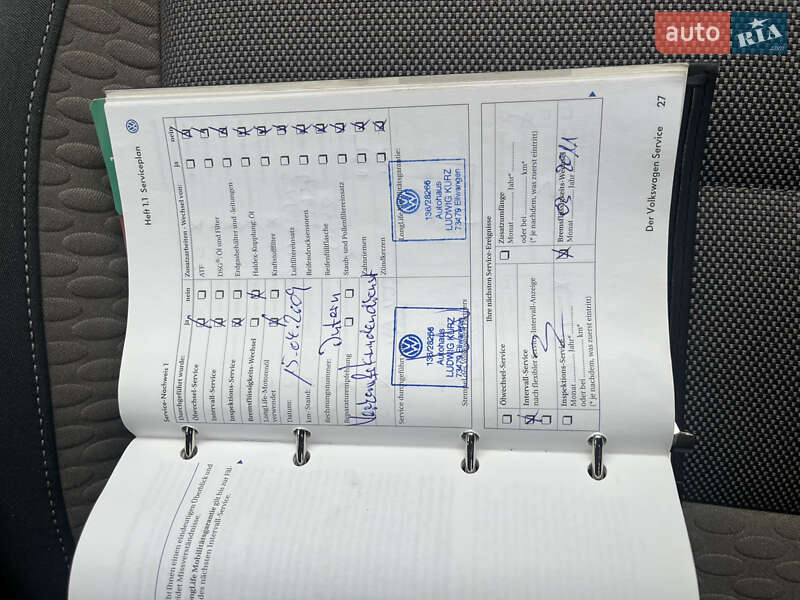 auto RIA
.com
Heft 1.1 Serviceplan
Service-Nachweis 1
Durchgeführt wurde: ja nein
Ölwechsel-Service
Intervall-Service
Inspektions-Service
Bremsflüssigkeits-Wechsel
LongLife-Motorenöl
verwendet
Datum: 15.04.2009
km-Stand:
Rechnungsnummer: Intern
Reparaturempfehlung
Service durchgeführt
136/28266
Autohaus
LUDWIG KURZ
73479 Ellwangen
Zusatzarbeiten - Wechsel von: ja nein
ATF
DSG®-Öl und Filter
Erdgasbehälter und -leitungen
Haldex-Kupplung: Öl
Kraftstofffilter
Luftfiltereinsatz
Reifendrucksensoren
Reifenfüllflasche
Staub- und Pollenfiltereinsatz
Zahnriemen
Zündkerzen
LongLife Mobilitätsgarantie:
136/28266
Autohaus
LUDWIG KURZ
73479 Ellwangen
Ihre nächsten Service-Ereignisse
Ölwechsel-Service
Intervall-Service
nach flexibler Service-Intervall-Anzeige
Inspektions-Service
Monat Jahr*
oder bei km*
(* je nachdem, was zuerst eintritt)
Zusatzumfänge
Monat Jahr*
oder bei km*
(* je nachdem, was zuerst eintritt)
Bremsflüssigkeits-Wechsel
Monat Jahr 2011
Der Volkswagen Service 27
Ihnen einen eindeutigen Überblick und
Missverständnisse.
LongLife Mobilitätsgarantie gilt bis zur Fäl-
des nächsten Intervall-Service.